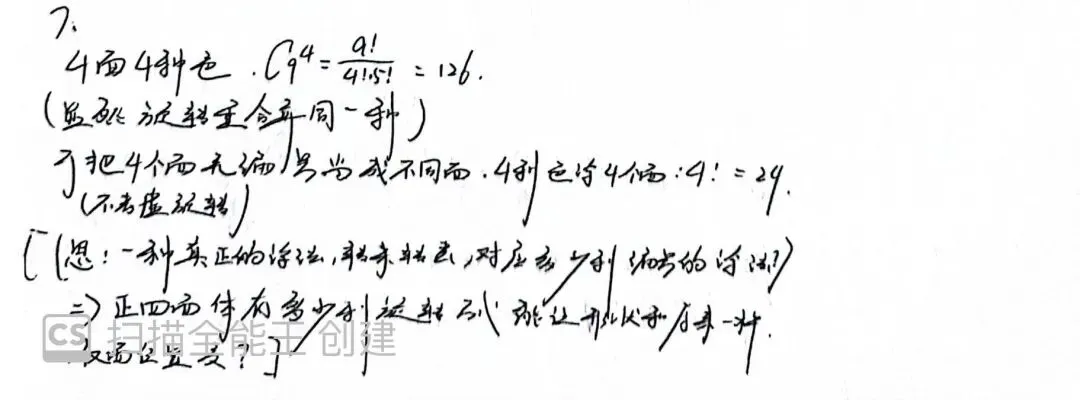 7.
4面4种色. C₉⁴ = 9!/(4!·5!) = 126.
(显然 旋转重合算同一种)
把4个面先编号当成不同面. 4种色涂4个面: 4! = 24.
(不考虑旋转)
[(思: 一种真正的涂法, 转来转去, 对应多少种编号的涂法?)
=> 正四面体有多少种旋转方式 能让形状和原来一样.
仅面位置变?]
CS 扫描全能王 创建